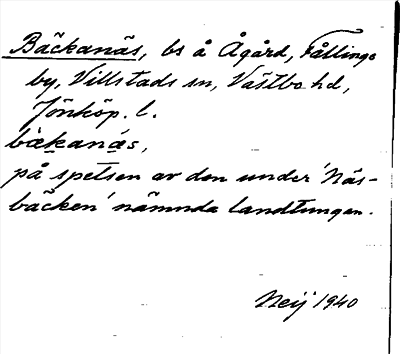 Bäckanäs, bs å Ågård, Fållinge
by, Villstads sn, Västbo hd,
Jönköp. l.
bäkanäs,
på spetsen av den under 'Näs-
bäcken' nämnda landtungan.
Neij 1940